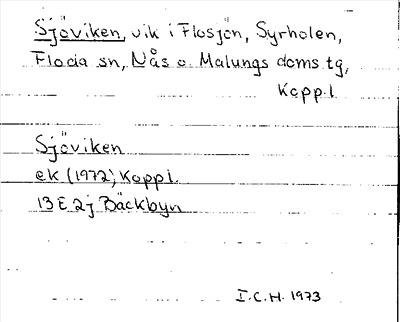 Sjöviken, vik i Flosjön, Syrholen,
Floda sn, Nås o. Malungs doms. tg,
Kopp.l.
Sjöviken
ek (1972), Kopp.l.
13 E 2j Bäckbyn
I.C.H. 1973